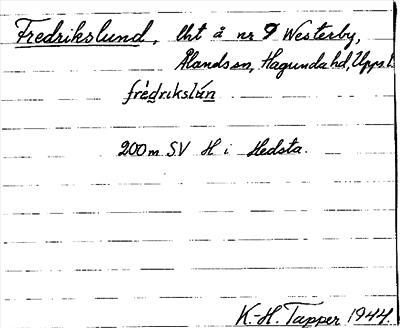 Fredrikslund, lht å nr 9 Westerby,
Ålandsson, Hagunda hd, Upps. l.
frèdrikslún
200 m SV H i Hedsta.
K.-H. Tapper 1944.